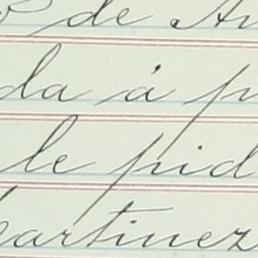 de
da á p
le pid
artinez